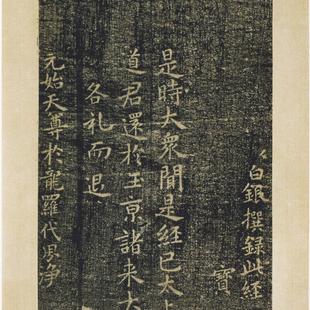 白銀撰録此經
寶
是時大衆聞是經已太上
道君還於玉京諸来大
各礼而退
元始天尊於龍羅代